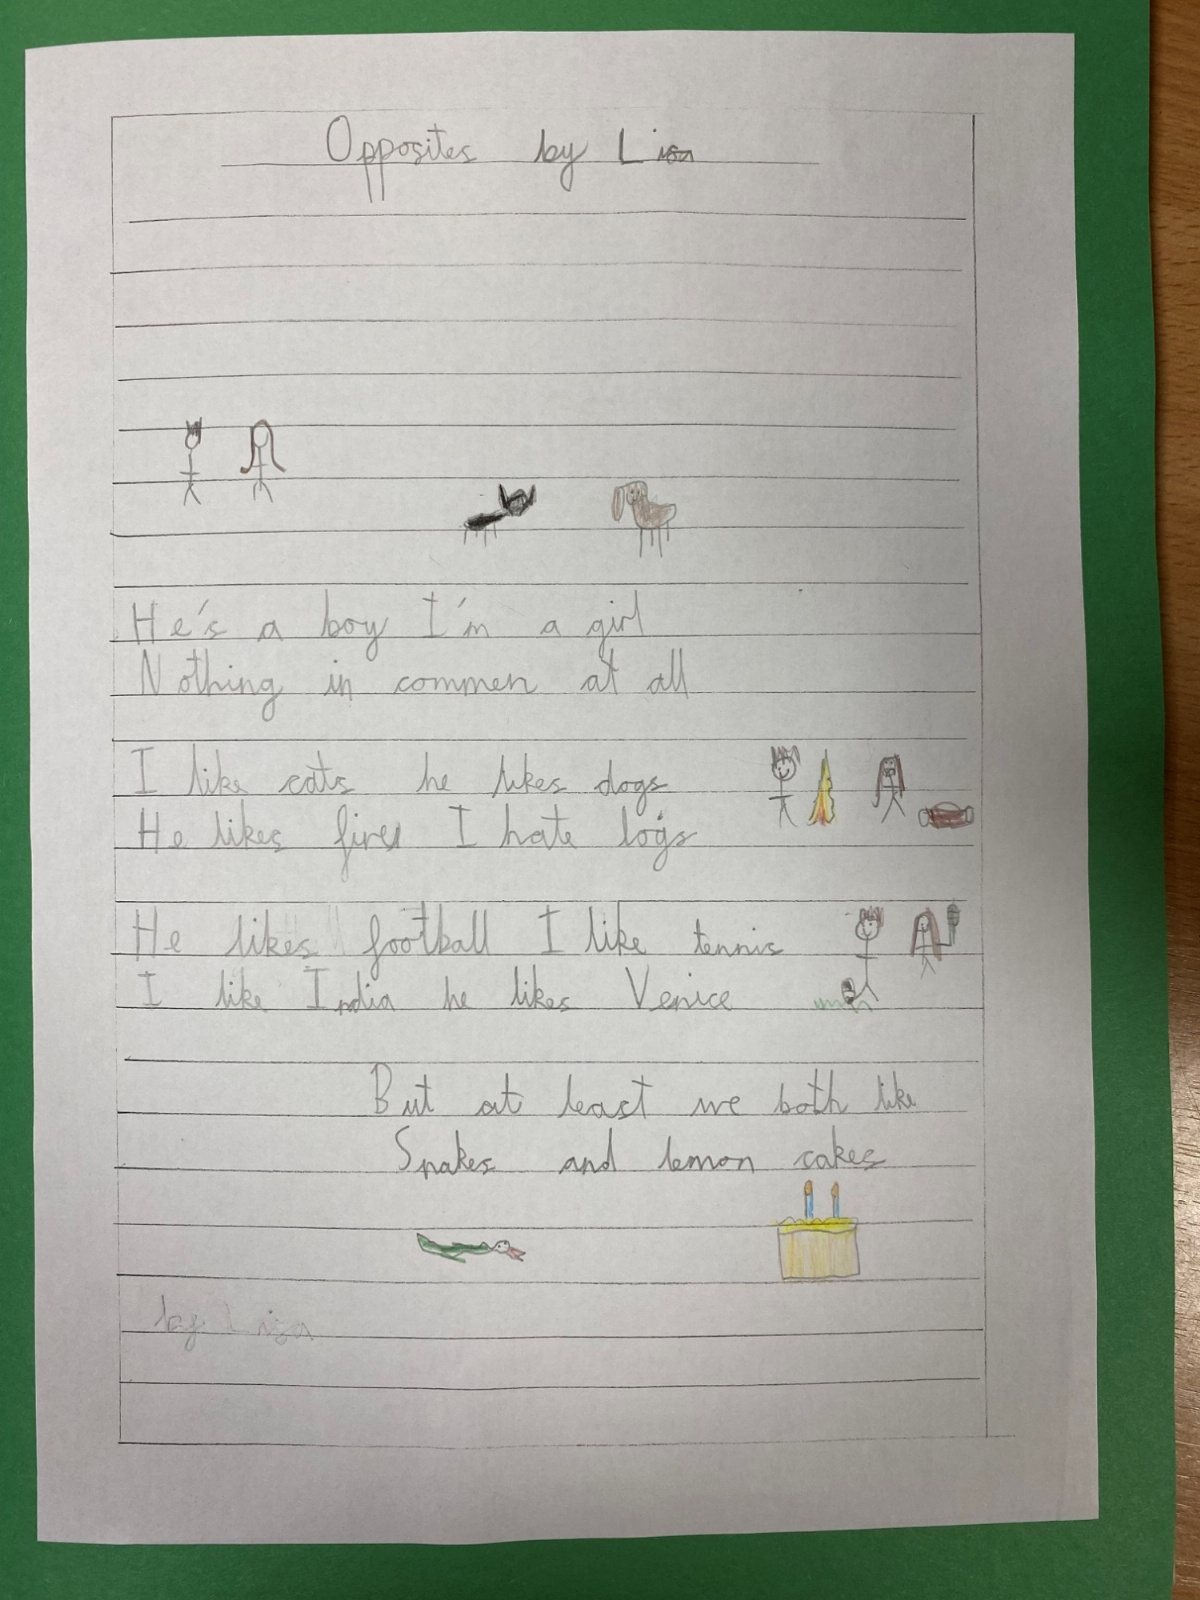 Opposites by Lisa
He's a boy I'm a girl
Nothing in commen at all
I like cats he likes dogs
He likes fires I hate logs
He likes football I like tennis
I like India he likes Venice
But at least we both like
Snakes and lemon cakes
by Lisa